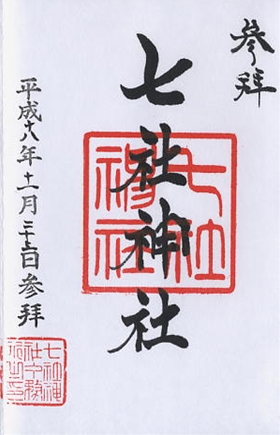 参拜
七社神社
七社神社
平成十八年十一月二十三日参拝
七社神
社々務
所之印